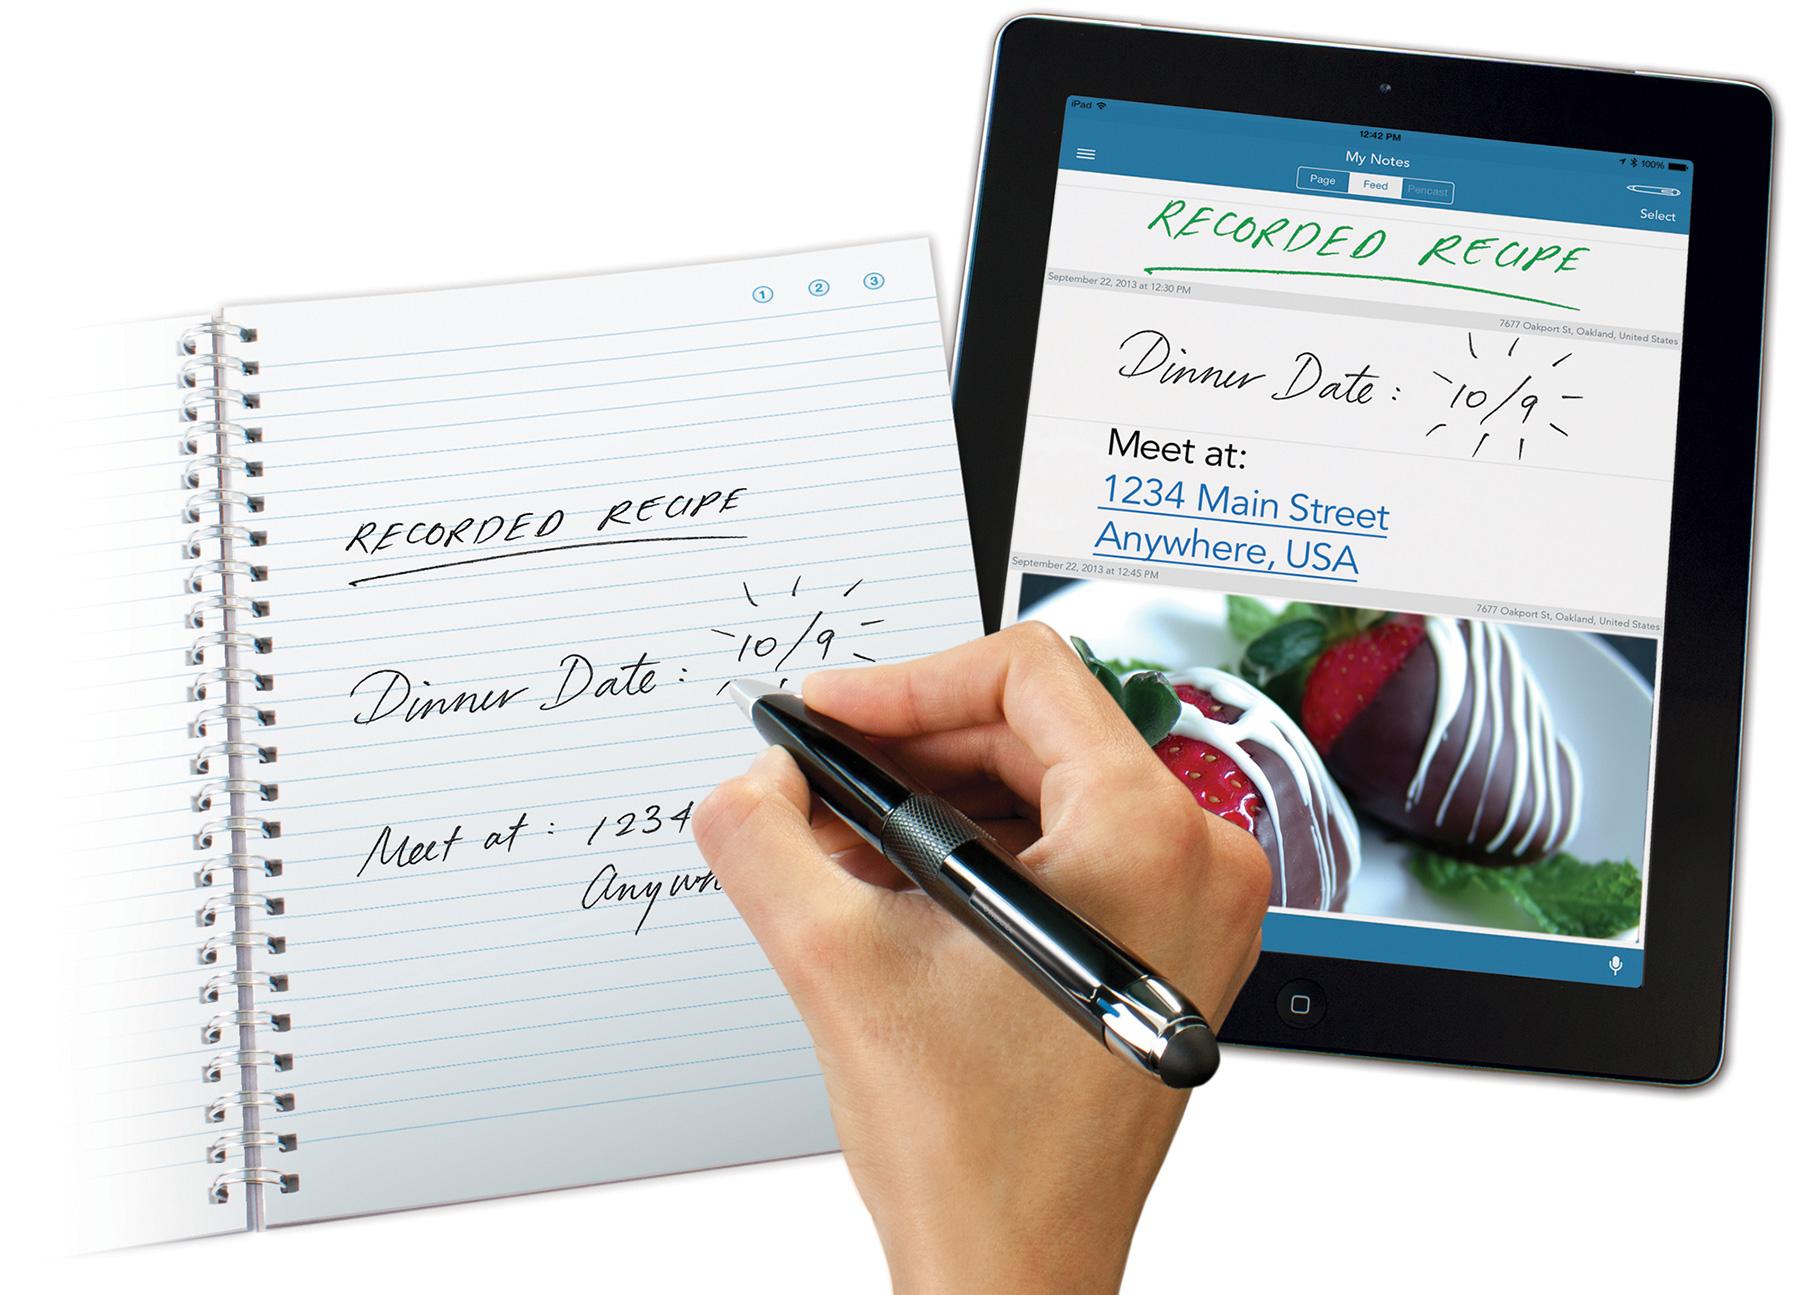 ① ② ③
RECORDED RECIPE
Dinner Date : 10/9
Meet at : 1234
Anywh
iPad
12:42 PM
100%
My Notes
Page Feed Pencast
Select
RECORDED RECIPE
September 22, 2013 at 12:30 PM
7677 Oakport St, Oakland, United States
Dinner Date : 10/9
Meet at:
1234 Main Street
Anywhere, USA
September 22, 2013 at 12:45 PM
7677 Oakport St, Oakland, United States